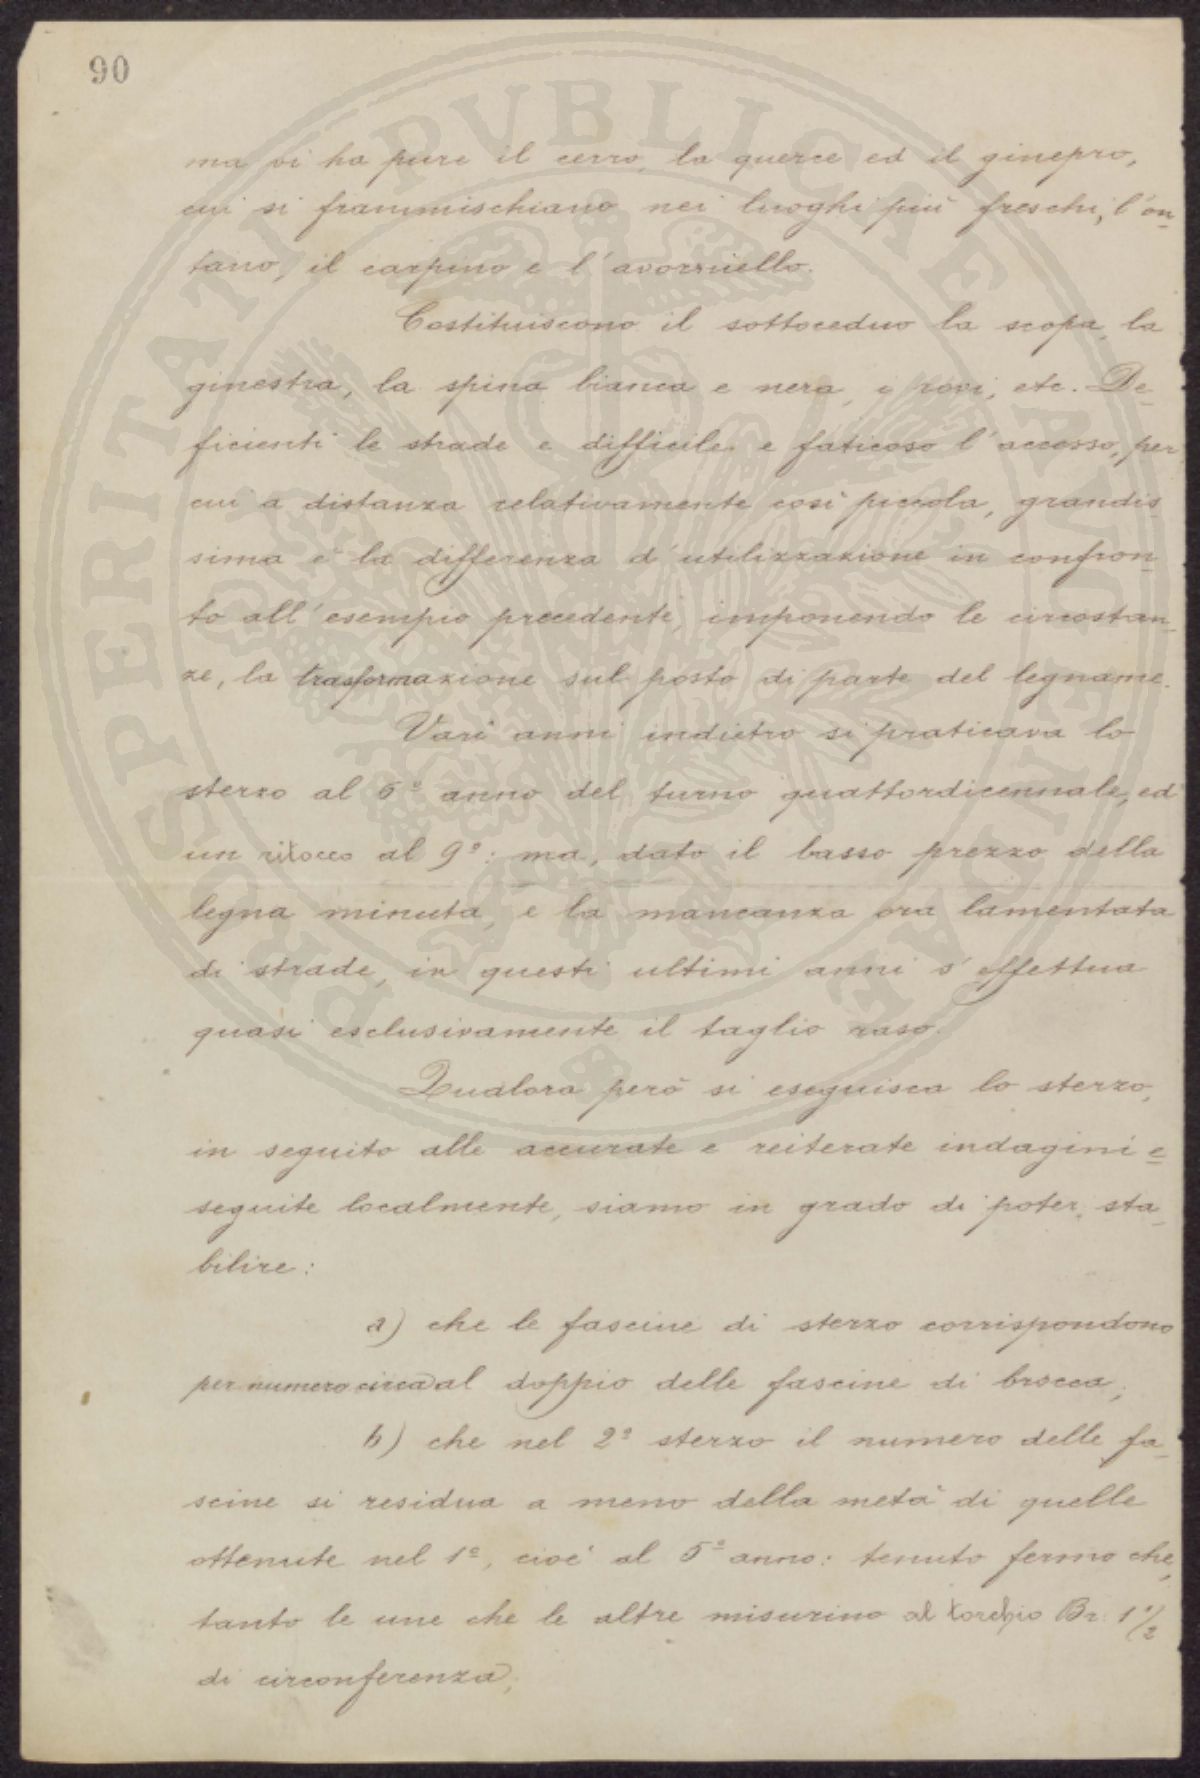 90
ma vi ha pure il cerro, la querce ed il ginepro,
cui si frammischiano nei luoghi più freschi, l'on_
tano, il carpino e l'avorniello.
Costituiscono il sottoceduo la scopa, la
ginestra, la spina bianca e nera, i rovi, etc. De_
ficienti le strade e difficile e faticoso l'accesso, per
cui a distanza relativamente così piccola, grandis_
sima è la differenza d'utilizzazione in confron_
to all'esempio precedente, imponendo le circostan_
ze, la trasformazione sul posto di parte del legname.
Vari anni indietro si praticava lo
sterzo al 5º anno del turno quattordicennale, ed
un ritocco al 9º: ma, dato il basso prezzo della
legna minuta, e la mancanza ora lamentata
di strade, in questi ultimi anni s'effettua
quasi esclusivamente il taglio raso.
Qualora però si eseguisca lo sterzo,
in seguito alle accurate e reiterate indagini e_
seguite localmente, siamo in grado di poter sta_
bilire:
a) che le fascine di sterzo corrispondono
per numero circa al doppio delle fascine di brocca;
b) che nel 2º sterzo il numero delle fa_
scine si residua a meno della metà di quelle
ottenute nel 1º, cioè al 5º anno: tenuto fermo che,
tanto le une che le altre misurino al torchio Br. 1 1/2
di circonferenza;
PROSPERITATI PVBLICAE AVGENDAE